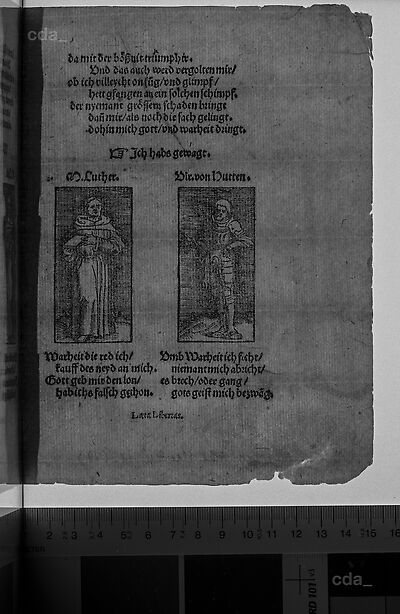 cda_
da mit der bößwit triumphir.
Vnd das auch werd vergolten mir/
ob ich villeycht on fůg/vnd glimpf/
hett gfangen an ein solchen schimpf.
der nyemant grössern schaden bringt
dañ mir/als noch die sach gelingt.
dohin mich gott/vnd warheit dringt.
☞ Ich habs gewagt.
M. Luther.
Vlr. von Hutten.
Warheit die red ich/
kauff des neyd an mich.
Gott geb mir den lon/
hab ichs falsch gthon.
Vmb Warheit ich ficht/
niemant mich abricht/
es brech/oder gang/
gots geist mich bezwãg.
Læta Libertas.
2 3 4 5 6 7 8 9 10 11 12 13 14 15 16
cda_